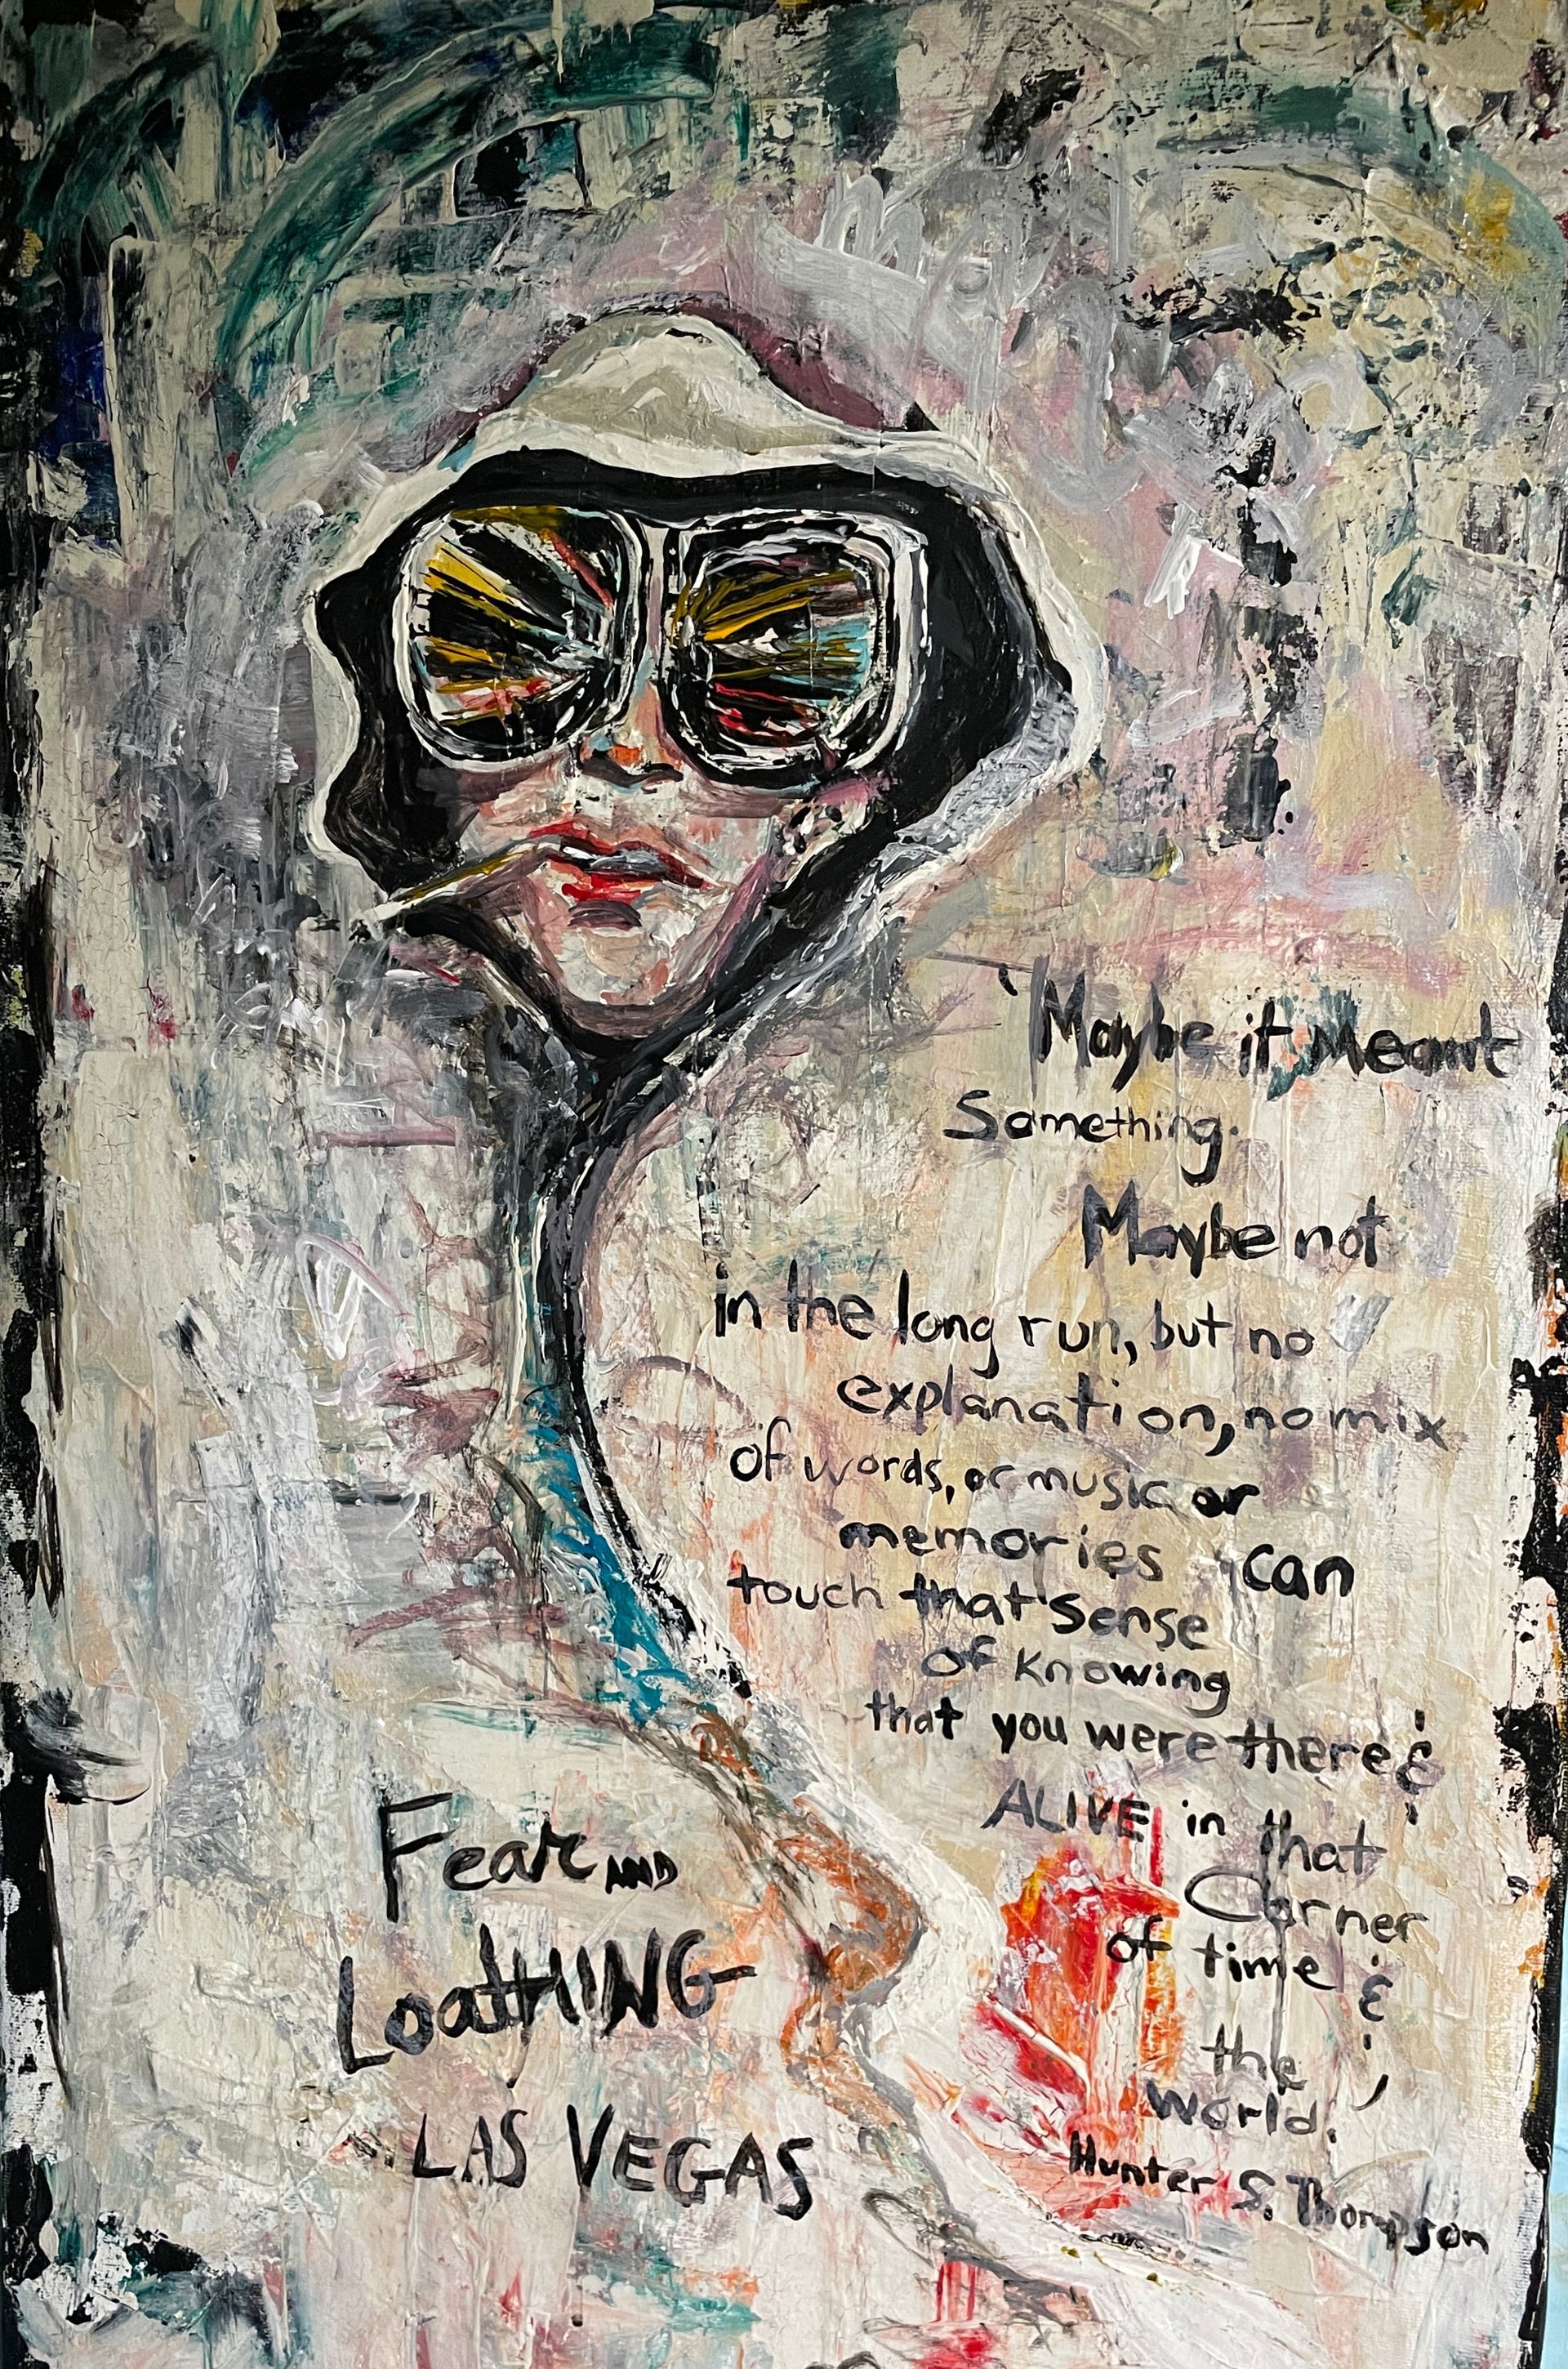 'Maybe it Meant
Something.
Maybe not
in the long run, but no
explanation, no mix
of words, or music or
memories can
touch that sense
of Knowing
that you were there &
ALIVE in that
Corner
of time &
the
World.'
Hunter S. Thompson
Fear AND
LoatHING
LAS VEGAS